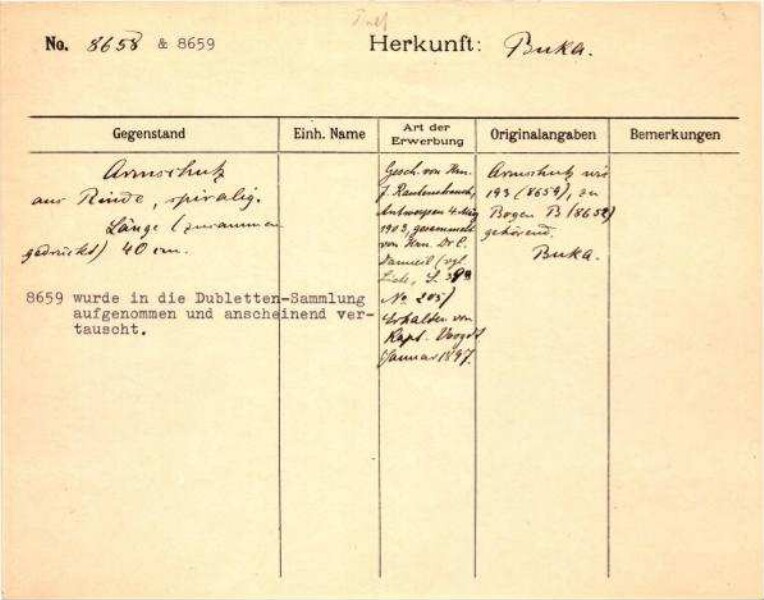 No. 8658 & 8659
Herkunft: Buka.
Gegenstand
Einh. Name
Art der
Erwerbung
Originalangaben
Bemerkungen
Armschutz
aus Rinde, spiralig.
Länge (zusammen
gedrückt) 40 cm.
8659 wurde in die Dubletten-Sammlung
aufgenommen und anscheinend ver-
tauscht.
Gesch. von Hrn.
J. Rautenstrauch,
Antwerpen 4. März
1903, gesammelt
von Hrn. Dr E.
Danneil (vgl.
Liste, S.
No 205)
Erhalten von
Kapt. Voogdt
Januar 1897.
Armschutz wie
193 (8659), zu
Bogen B (8652)
gehörend.
Buka.